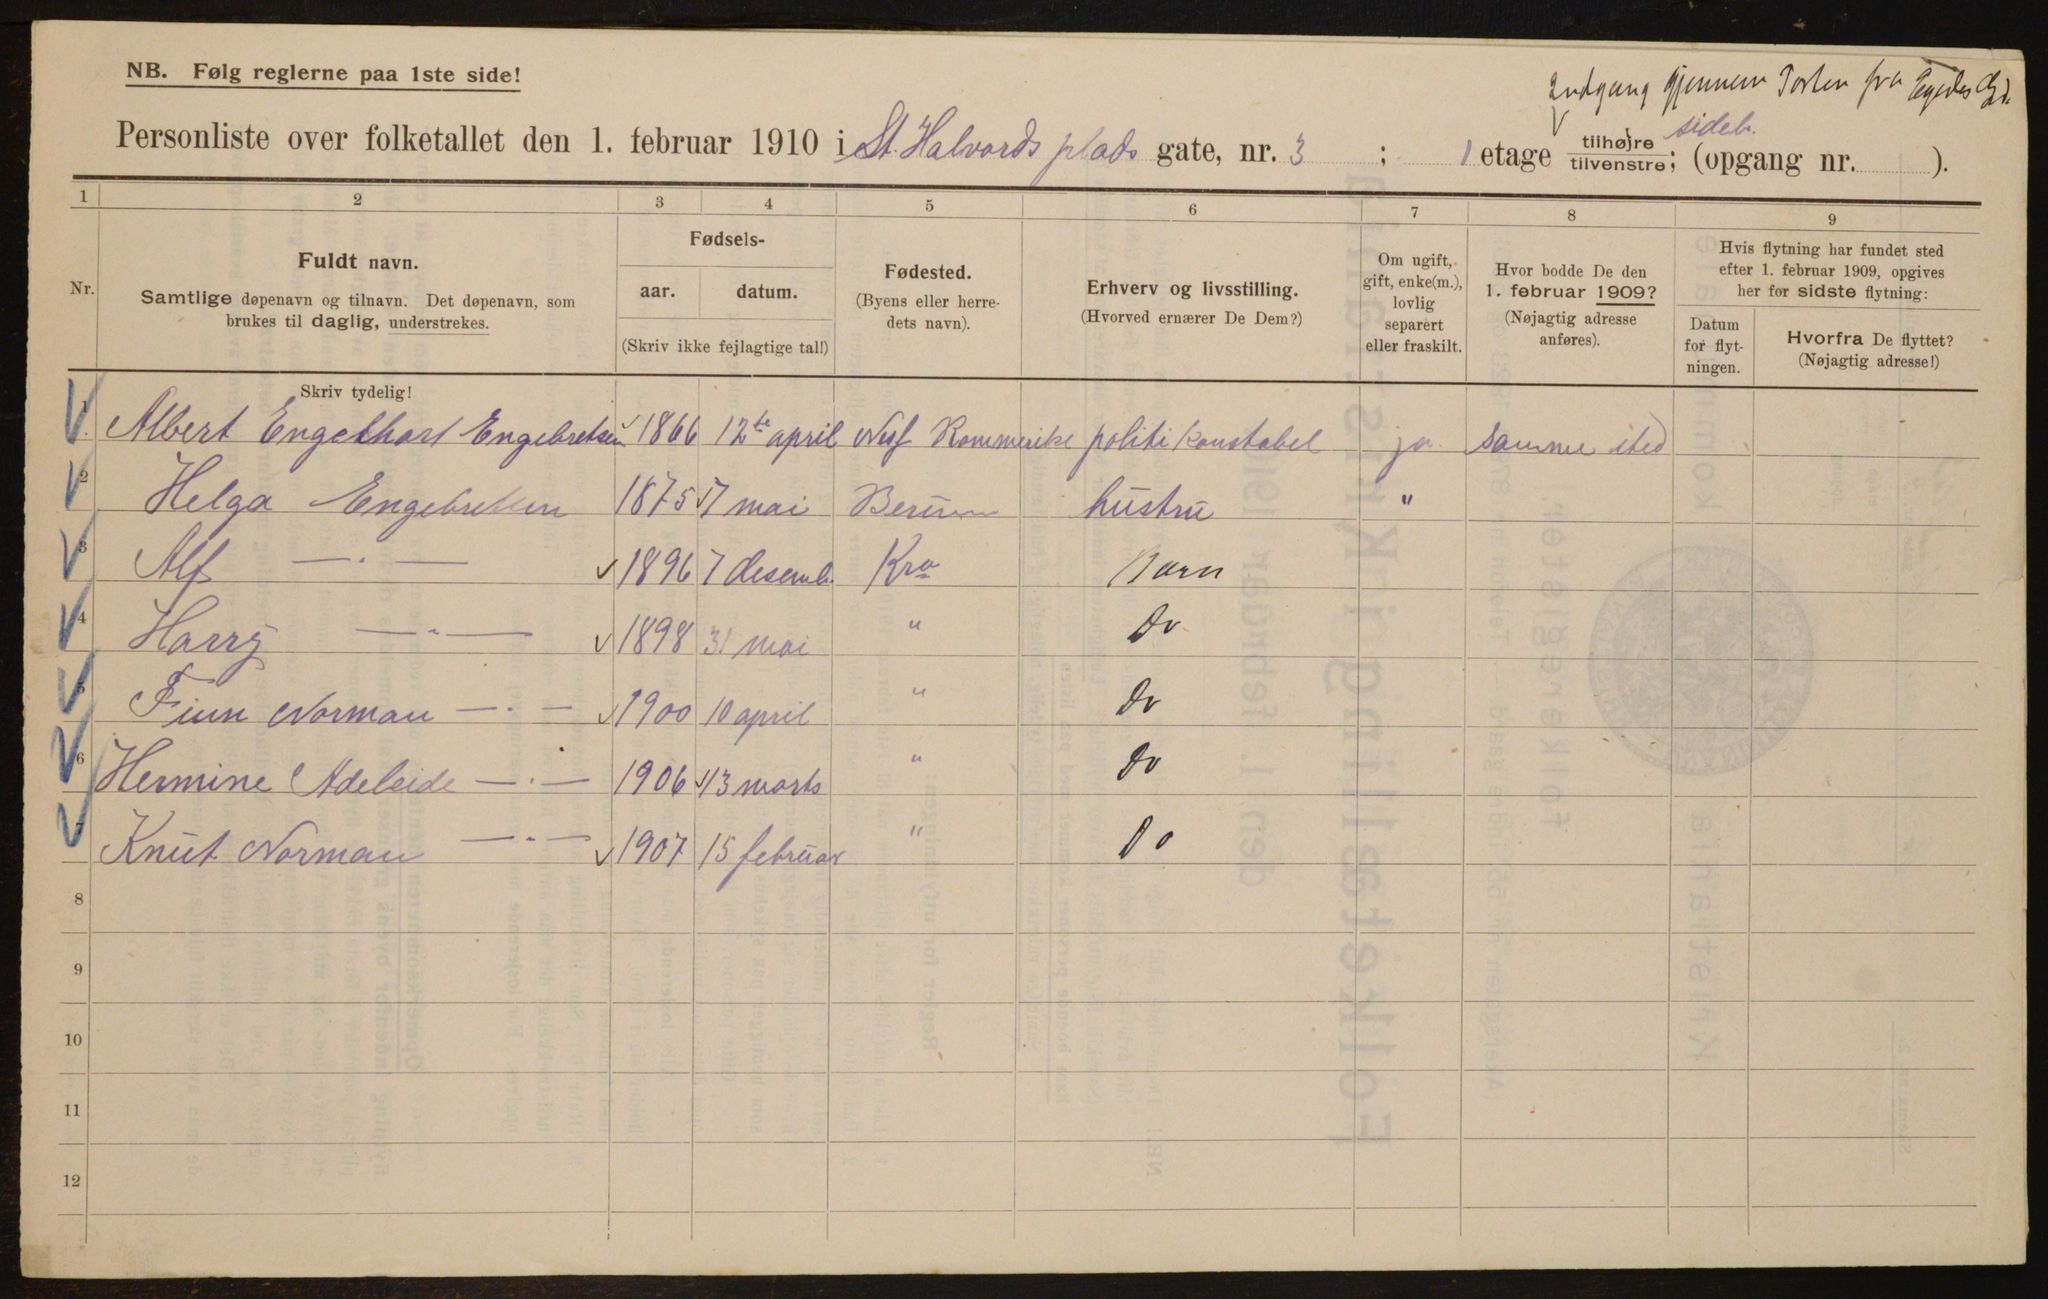 NB. Følg reglerne paa 1ste side!
Indgang gjennem Porten fra Egedes Gd.
sideb.
Personliste over folketallet den 1. februar 1910 i St. Halvards plads gate, nr. 3 ; 1 etage tilhøjre / tilvenstre; (opgang nr. ).
1 2 3 4 5 6 7 8 9
Nr.
Fuldt navn.
Samtlige døpenavn og tilnavn. Det døpenavn, som
brukes til daglig, understrekes.
Fødsels-
aar. datum.
(Skriv ikke fejlagtige tal!)
Fødested.
(Byens eller herre-
dets navn).
Erhverv og livsstilling.
(Hvorved ernærer De Dem?)
Om ugift,
gift, enke(m.),
lovlig
separert
eller fraskilt.
Hvor bodde De den
1. februar 1909?
(Nøjagtig adresse
anføres).
Hvis flytning har fundet sted
efter 1. februar 1909, opgives
her for sidste flytning:
Datum
for flyt-
ningen.
Hvorfra De flyttet?
(Nøjagtig adresse!)
Skriv tydelig!
1 Albert Engelhart Engebretsen 1866 12te april Romerike politikonstabel ja samme sted
2 Helga Engebretsen 1875 7 mai Berum hustru "
3 Alf —·— 1896 7 desemb. Kra Barn
4 Harry —·— 1898 31 mai " Do
5 Finn Norman —·— 1900 10 april " Do
6 Hermine Adeleide —·— 1906 13 marts " Do
7 Knut Norman —·— 1907 15 februar " Do
8
9
10
11
12